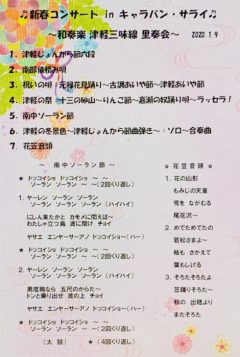 ♫新春コンサート in キャラバン・サライ♫
～和奏楽 津軽三味線 里奏会～ 2020.1.9
1. 津軽じょんがら節六段
2. 南部俵積み唄
3. 祝いの唄｜元禄花見踊り～古調あいや節～津軽あいや節
4. 津軽の祭｜十三の砂山～りんご節～嘉瀬の奴踊り唄～ラッセラ！
5. 南中ソーラン節
6. 津軽の冬景色～津軽じょんがら節曲弾き～：ソロ～合奏曲
7. 花笠音頭
～ 南中ソーラン節 ～
★ ドッコイショ ドッコイショ ～ ～
ソーラン ソーラン ～ ～(2回くり返し)
1. ヤーレン ソーラン ソーラン
ソーラン ソーラン ソーラン(ハイハイ)
にしん来たかと カモメに問えば～
わたしゃ立つ鳥 波に聞け チョイ
ヤサエ エンヤーサーアノ ドッコイショ～(ハー)
★ ドッコイショ ドッコイショ ～ ～
ソーラン ソーラン ～ ～(2回くり返し)
2. ヤーレン ソーラン ソーラン
ソーラン ソーラン ソーラン(ハイハイ)
男度胸なら 五尺のからだ～
ドンと乗り出せ 波の上 チョイ
ヤサエ エンヤーサーアノ ドッコイショ～(ハー)
★ ドッコイショ ドッコイショ ～ ～
ソーラン ソーラン ～ ～(2回くり返し)
(太鼓) ★(4回くり返し)
☆ 花笠音頭 ☆
1. 花の山形
もみじの天童
雪を ながむる
尾花沢～
2. めでためでたの
若松さまよ～
枝も さかえて
葉もしげる
3. そろたそろたよ
笠踊りそろた～
秋の 出穂より
まだそろた